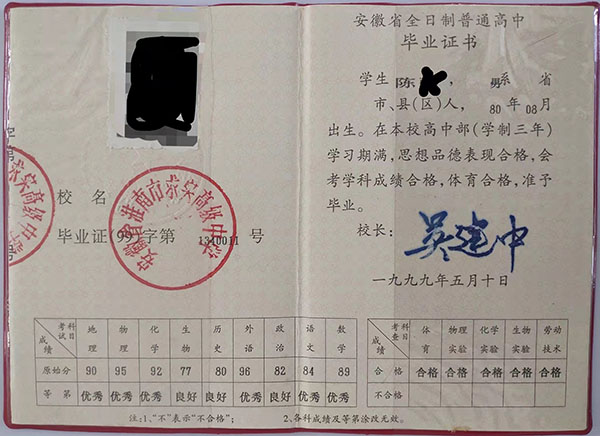 校名
毕业证(99)字第1310011号
考试科目 地理 物理 化学 生物 历史 外语 政治 语文 数学
成绩
原始分 90 95 92 77 80 96 82 84 89
等第 优秀 优秀 优秀 良好 良好 优秀 良好 优秀 优秀
注:1、“不”表示“不合格”; 2、各科成绩及等第涂改无效。
安徽省全日制普通高中
毕业证书
学生陈 , 男 系 省
市、县(区)人, 80年08月
出生。在本校高中部(学制三年)
学习期满,思想品德表现合格,会
考学科成绩合格,体育合格,准予
毕业。
校长: 吴建中
一九九九年五月十日
考查科目 体育 物理实验 化学实验 生物实验 劳动技术
成绩
合格 合格 合格 合格 合格 合格
不合格